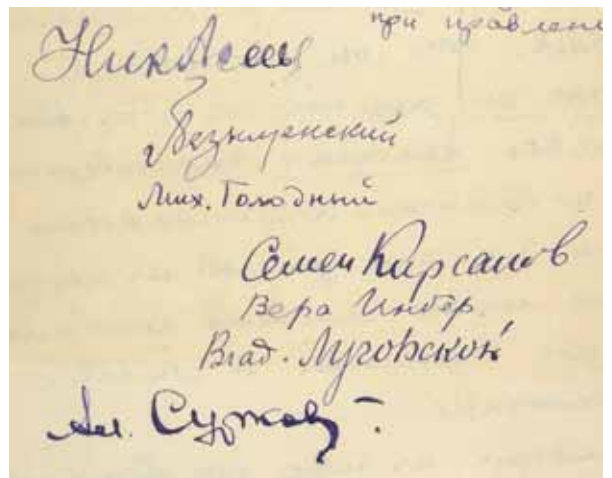 при правлени
Ник Асеев
Безыменский
Мих. Голодный
Семен Кирсанов
Вера Инбер
Влад. Луговской
Ал. Сурков